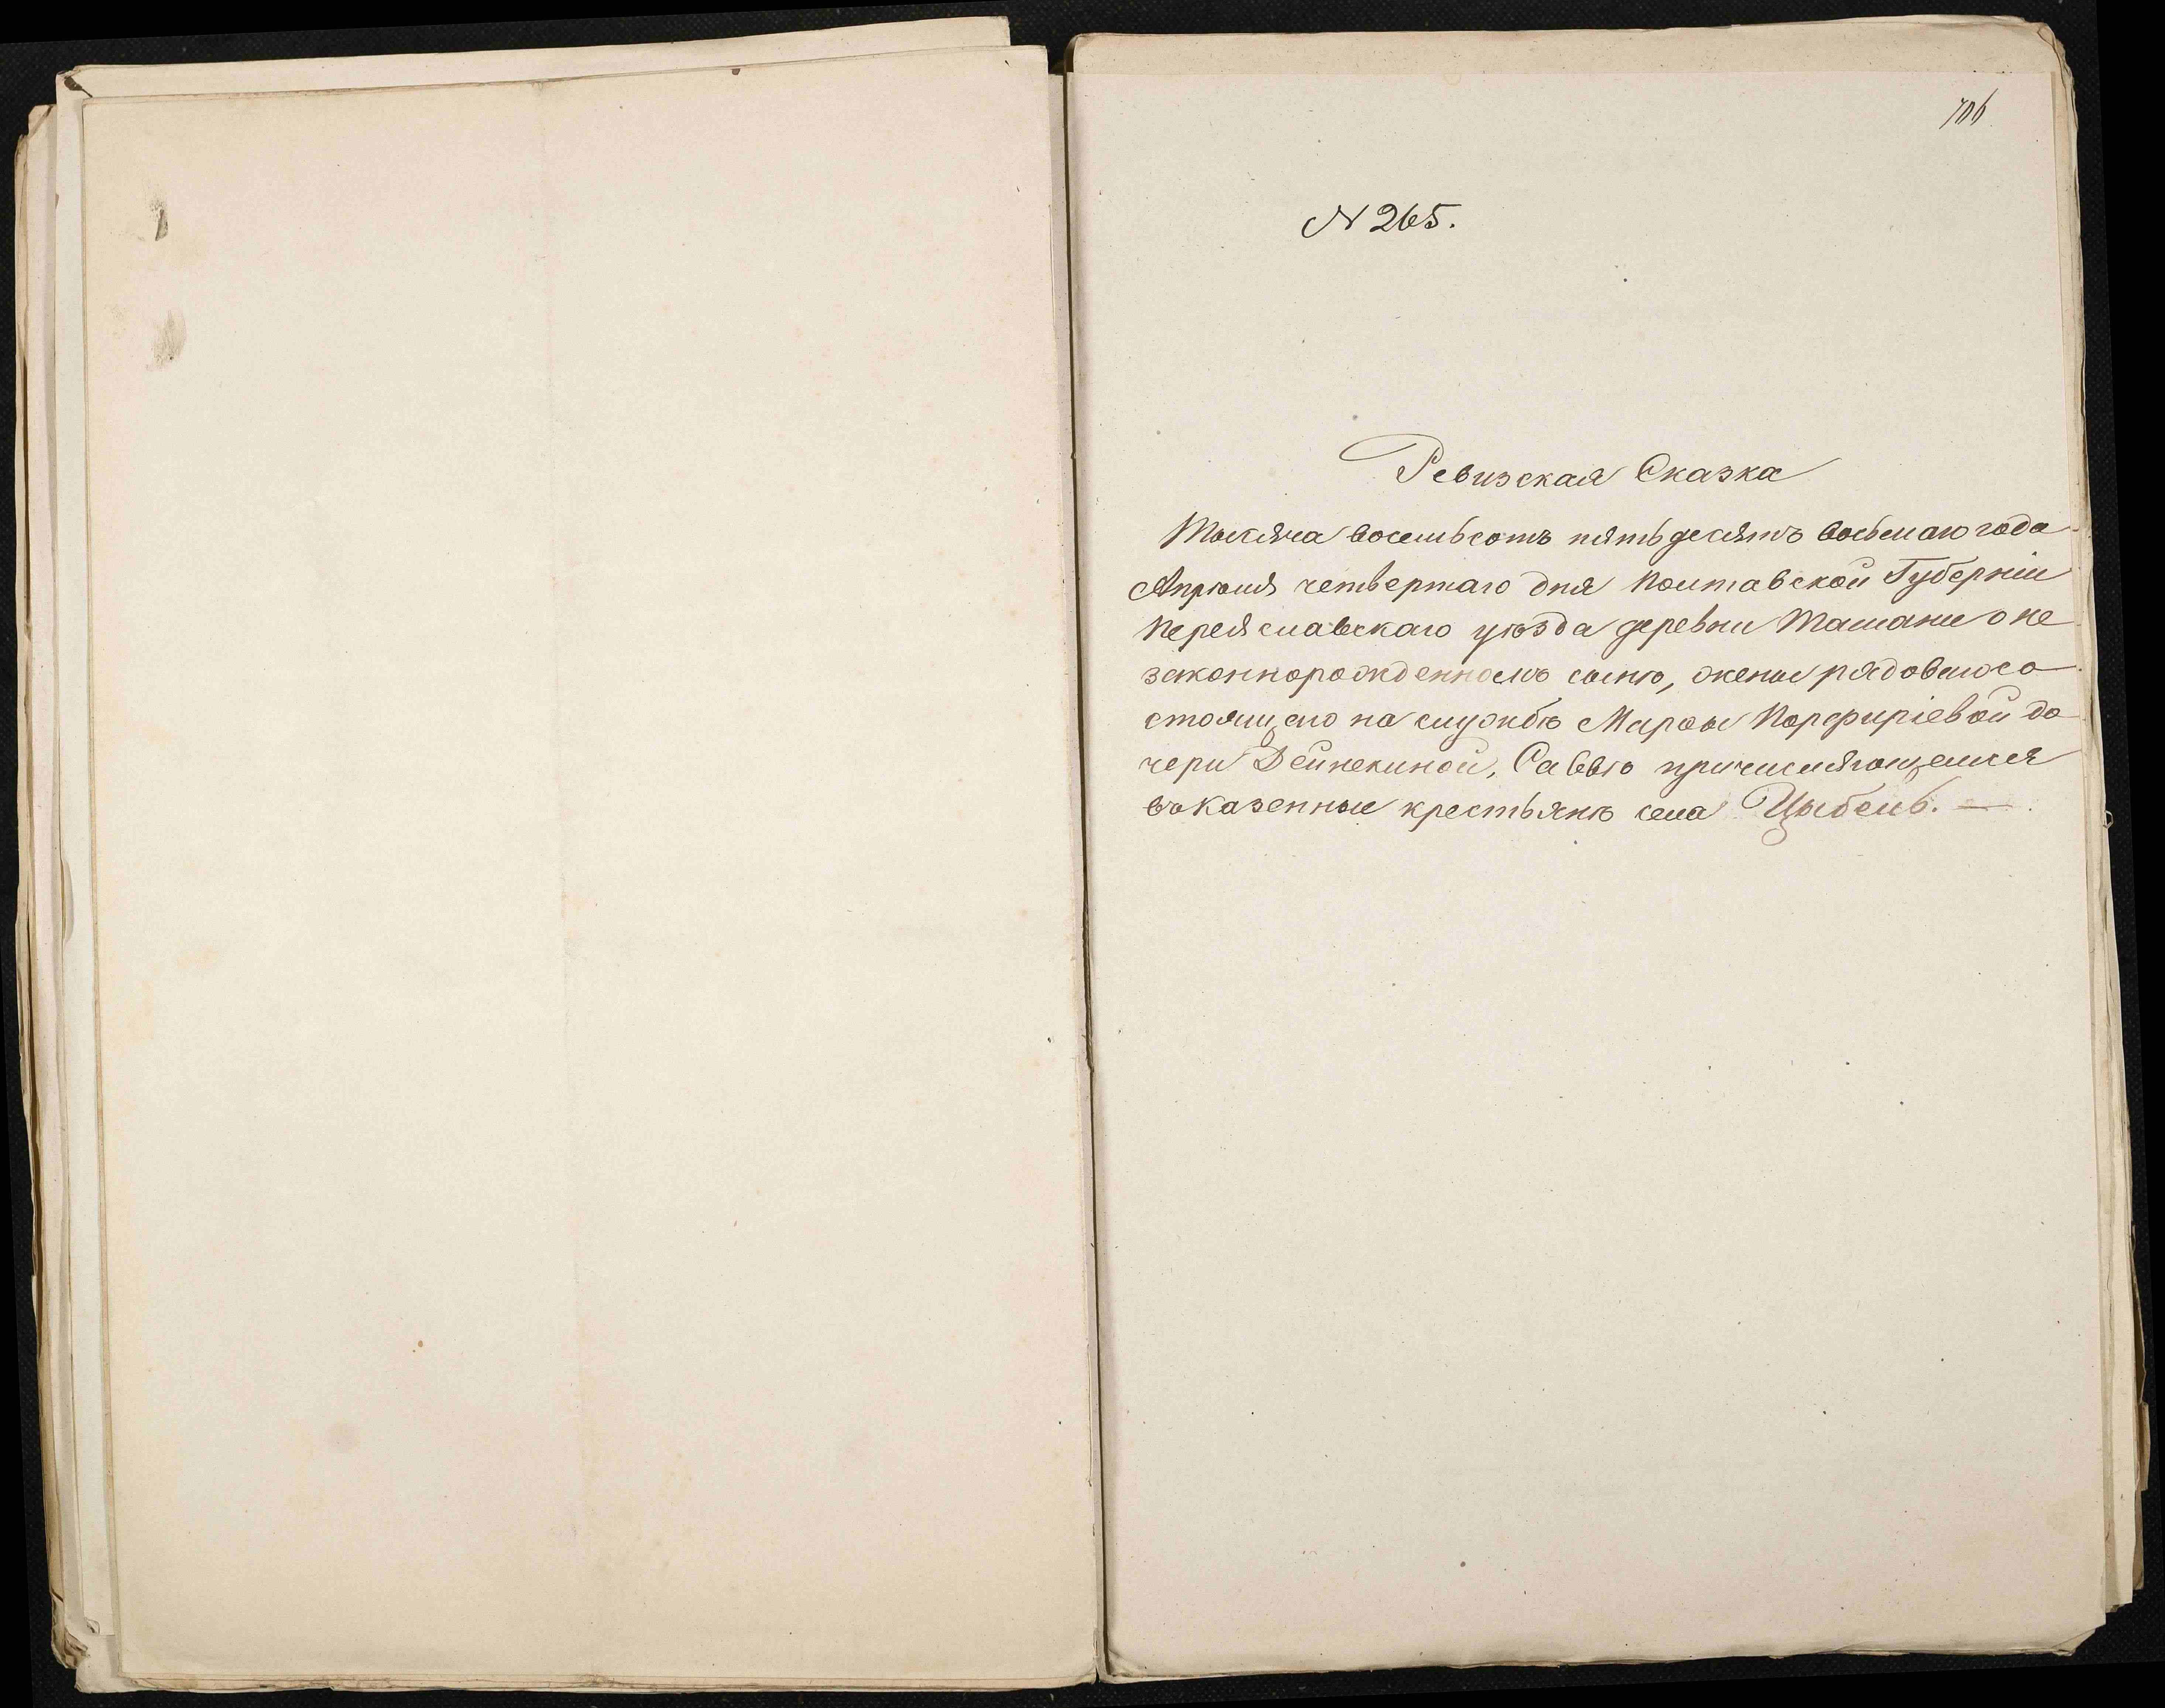 706
N 265.
Ревизская Сказка
Тысяча восемьсотъ пятьдесятъ восьмаго года
Апрѣля четвертаго дня Полтавской Губерніи
Переяславскаго уѣзда деревни Ташани о не
законнорожденномъ сынѣ, жены рядоваго со
стоящаго на службѣ Марѳы Порфиріевой до
чери Дейнекиной, Саввѣ причисляющемся
въ казенные крестьянѣ села Цыбель. —